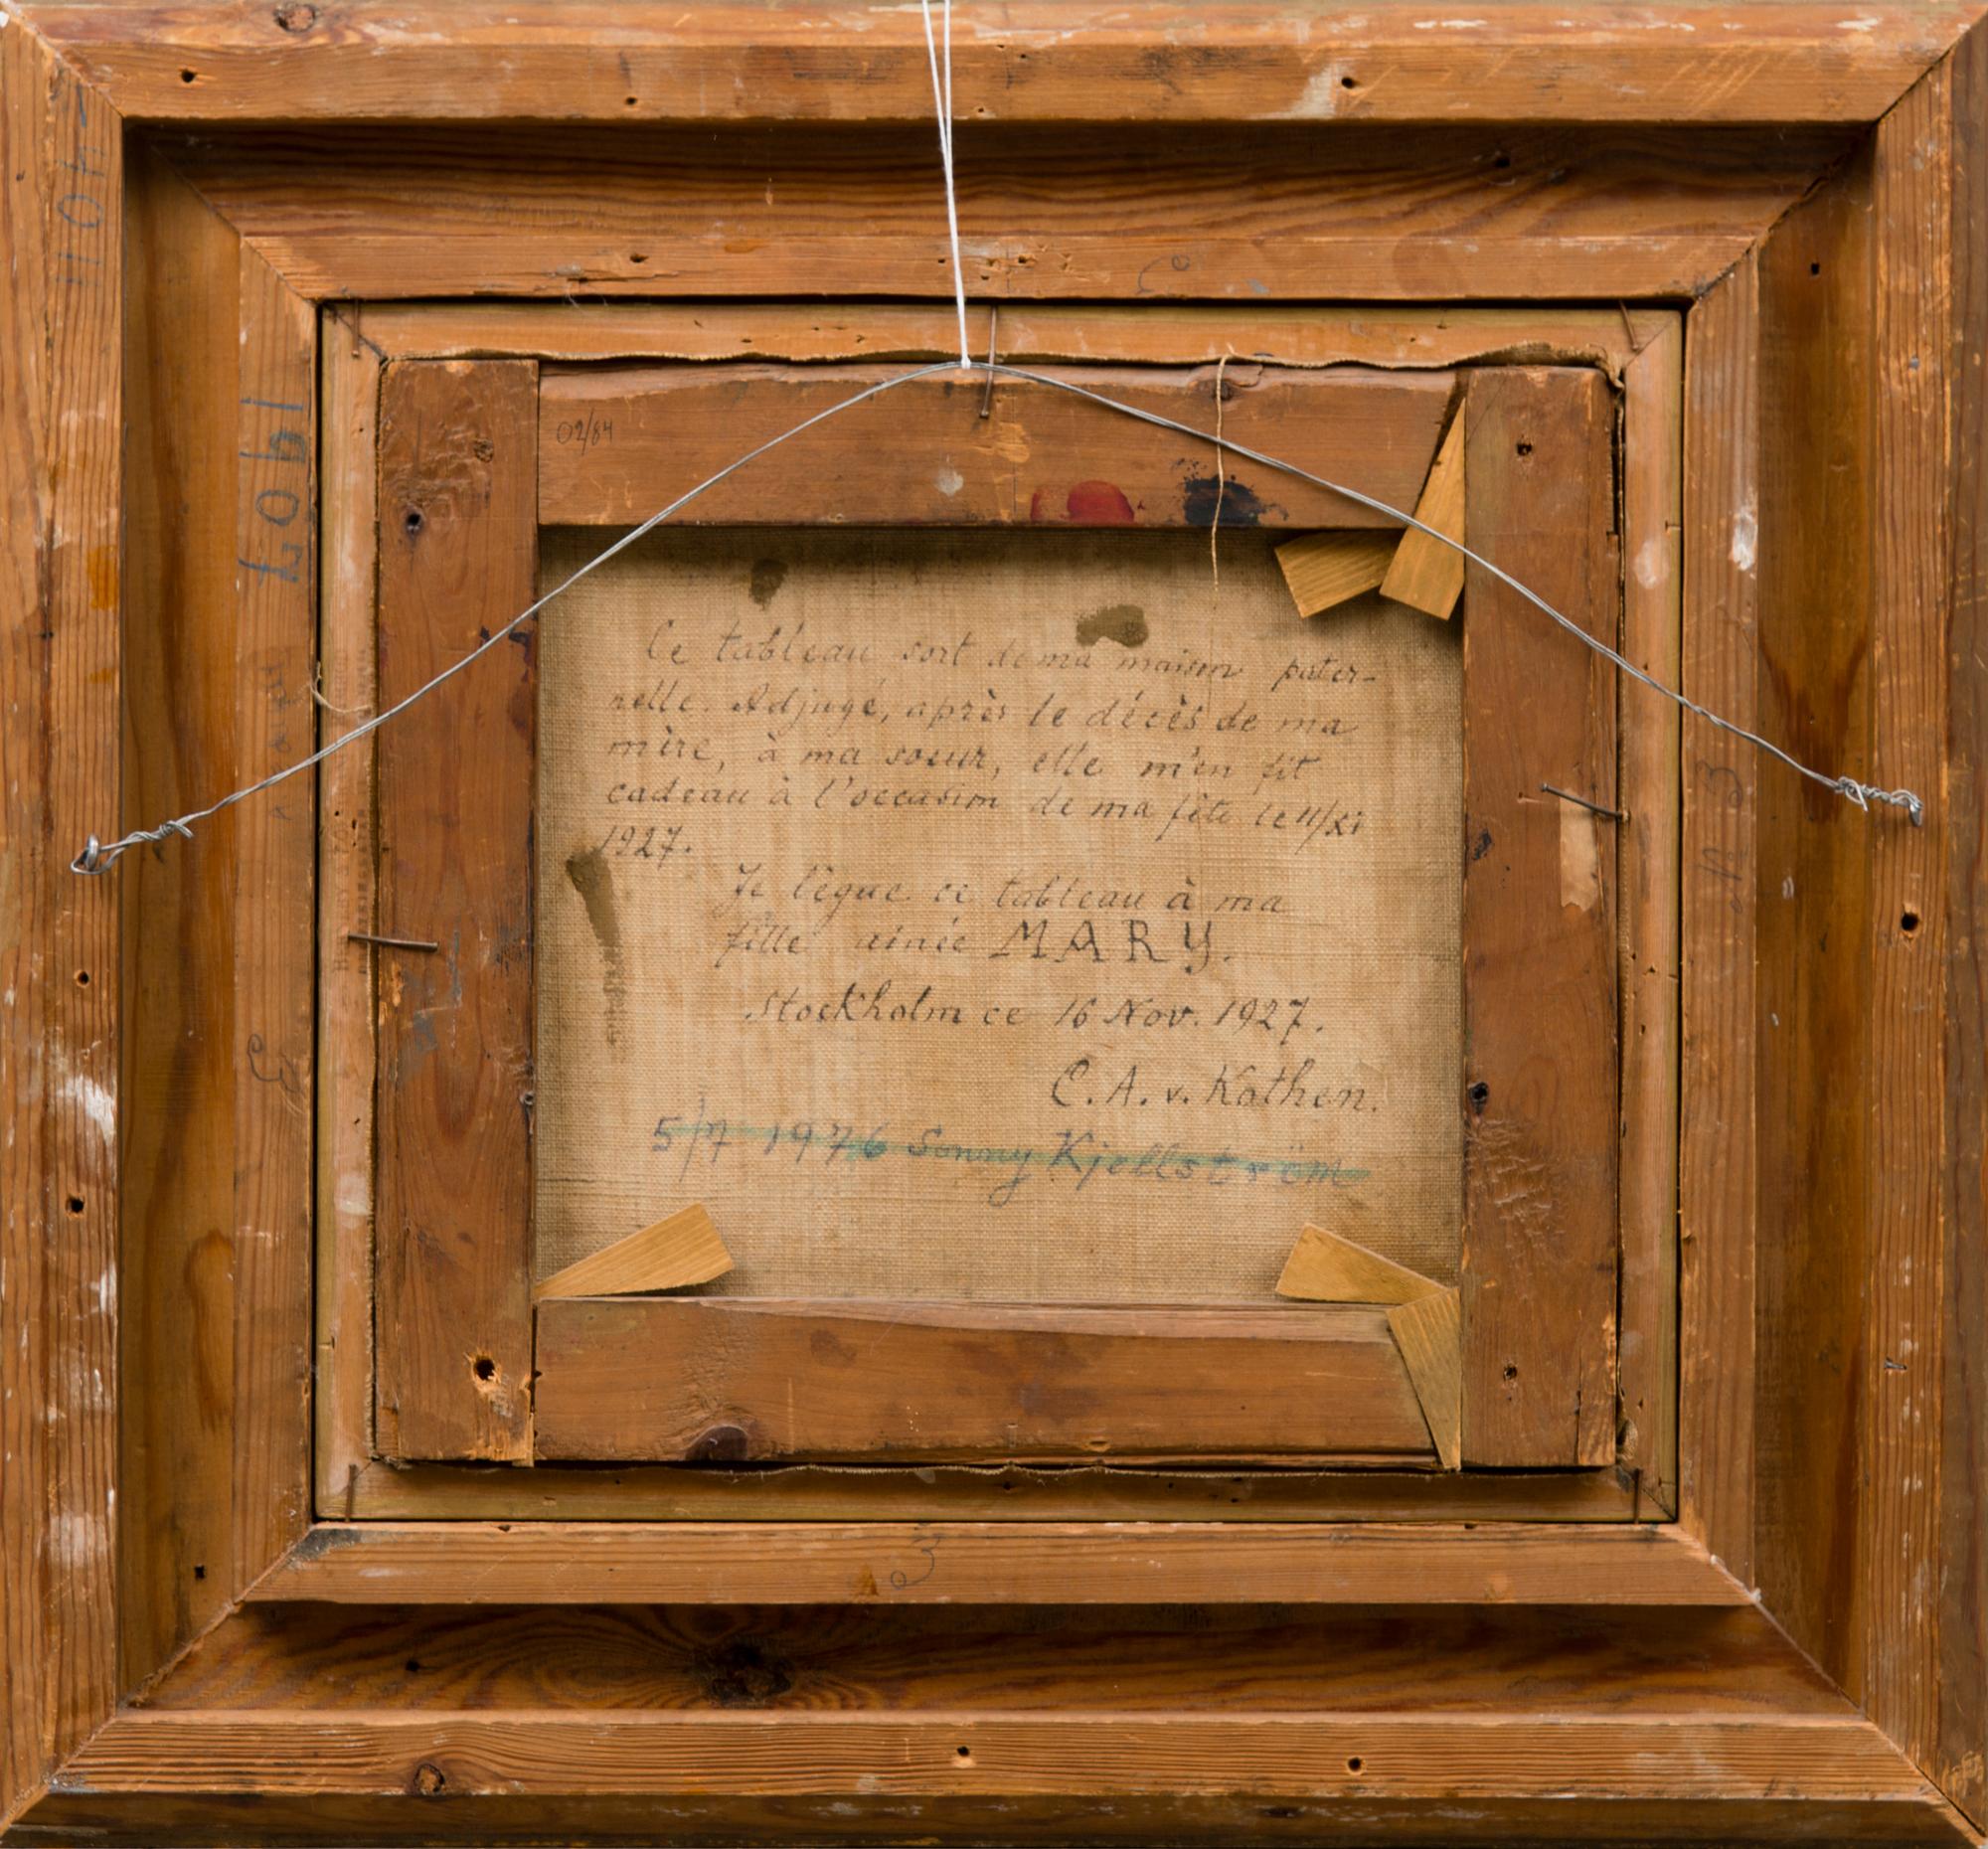 02/84
Ce tableau sort de ma maison pater-
nelle. Adjugé, après le décès de ma
mère, à ma soeur, elle m'en fit
cadeau à l'occasion de ma fête le 11/XI
1927.
Je lègue ce tableau à ma
fille ainée MARY.
Stockholm ce 16 Nov. 1927.
C. A. v. Kathen.
5/7 1976 Sonny Kjellström